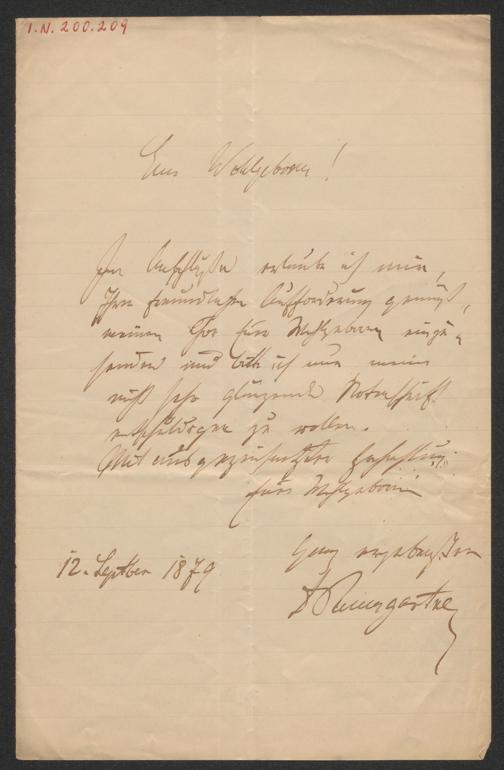 I.N. 200.209
Euer Wohlgeboren!
Im Anschlusse erlaube ich mir,
Ihrer freundlichen Aufforderung gemäß,
meinen Chor Euer Wohlgeboren einzu-
senden und bitte ich nur meine
nicht sehr glänzende Notenschrift
entschuldigen zu wollen.
Mit ausgezeichneter Hochachtung
Euer Wohlgeboren
ganz ergebenster
12. September 1879
Baumgartner